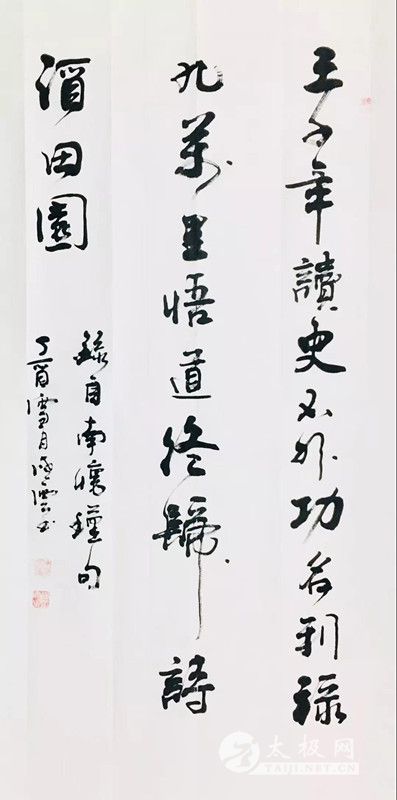 五千年讀史不外功名利祿
九萬里悟道終歸詩
酒田園
錄自南懷瑾句
丁酉雪月雲书
太极网
TAIJI.NET.CN